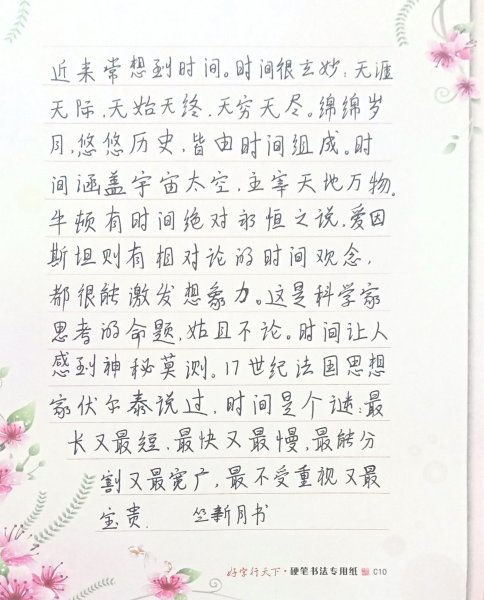 近来常想到时间。时间很玄妙:无涯
无际,无始无终,无穷无尽。绵绵岁
月,悠悠历史,皆由时间组成。时
间涵盖宇宙太空,主宰天地万物。
牛顿有时间绝对永恒之说,爱因
斯坦则有相对论的时间观念,
都很能激发想象力。这是科学家
思考的命题,姑且不论。时间让人
感到神秘莫测。17世纪法国思想
家伏尔泰说过,时间是个谜:最
长又最短,最快又最慢,最能分
割又最宽广,最不受重视又最
宝贵. 竺新月书
好字行天下·硬笔书法专用纸 C10